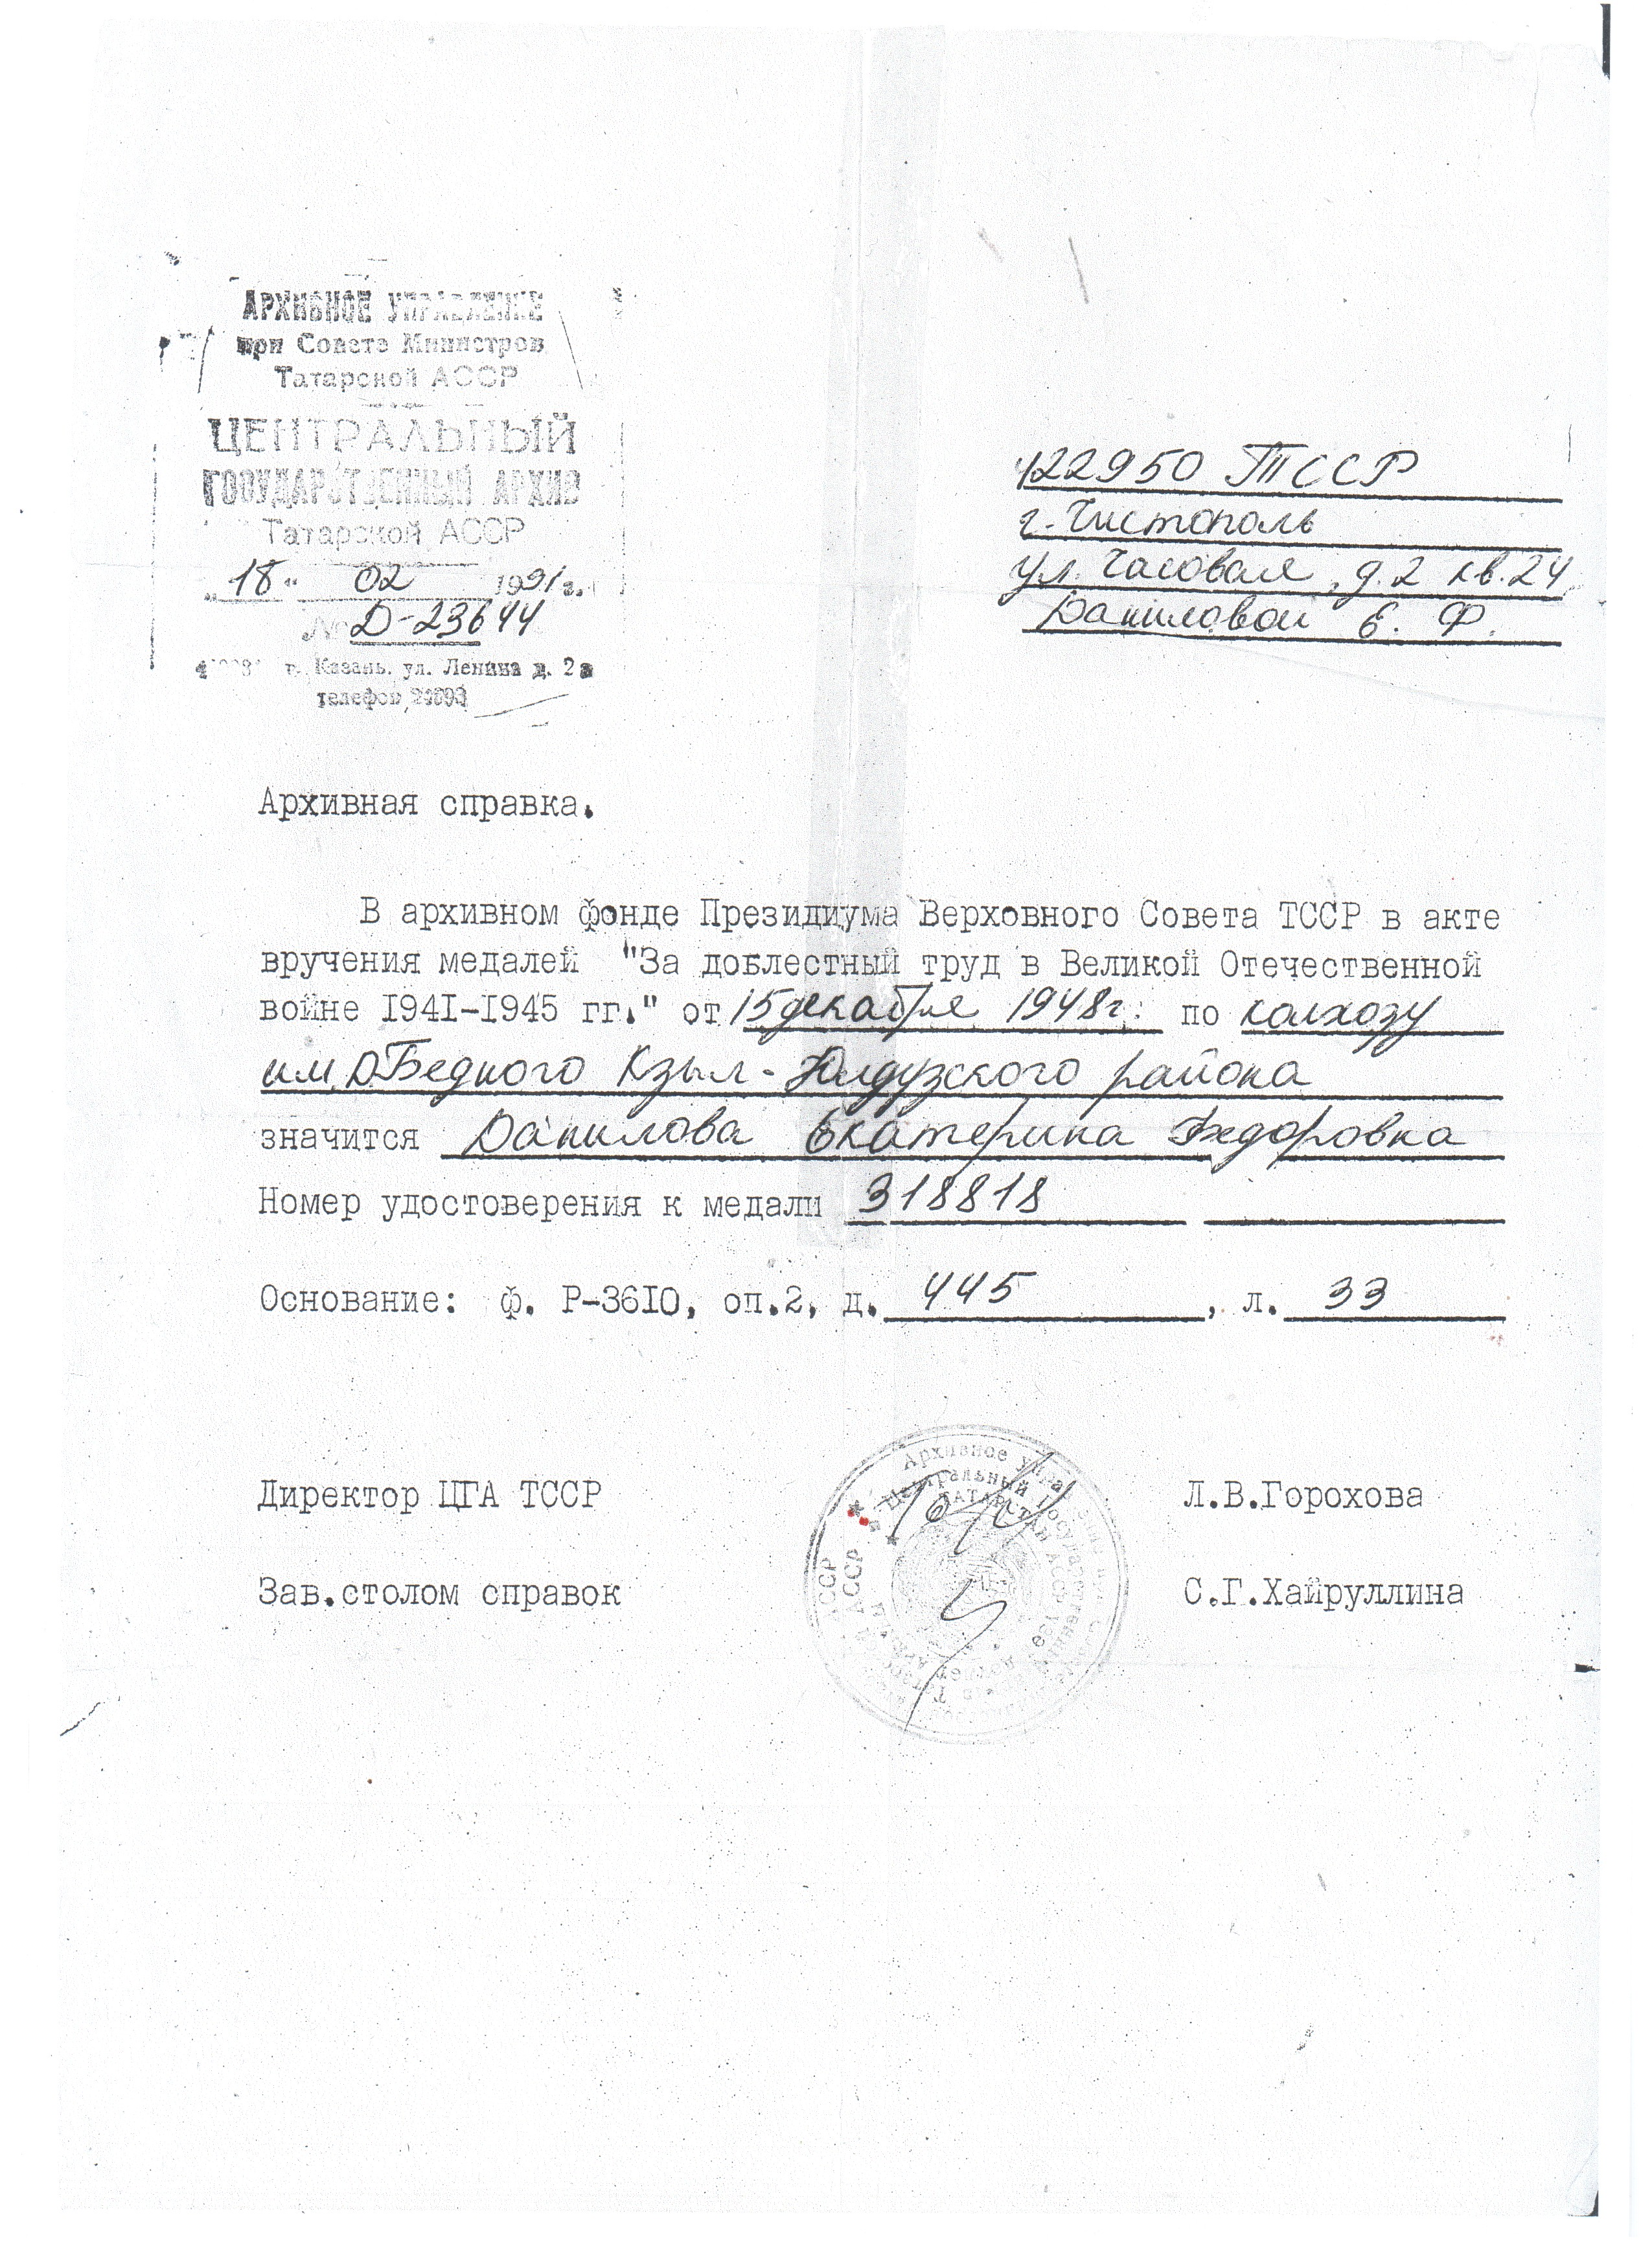 АРХИВНОЕ УПРАВЛЕНИЕ
при Совете Министров
Татарской АССР
ЦЕНТРАЛЬНЫЙ
ГОСУДАРСТВЕННЫЙ АРХИВ
Татарской АССР
„18" 02 1991г.
№ Д-23644
г. Казань, ул. Ленина д. 2а
телефон
422950 ТССР
г. Чистополь
ул. Часовая, д.2 кв.24
Даниловой Е. Ф.
Архивная справка.
В архивном фонде Президиума Верховного Совета ТССР в акте
вручения медалей "За доблестный труд в Великой Отечественной
войне I94I-I945 гг." от 15 декабря 1948г. по колхозу
им. Д.Бедного Кзыл-Юлдузского района
значится Данилова Екатерина Федоровна
Номер удостоверения к медали 318818
Основание: ф. Р-36I0, оп.2, д. 445, л. 33
Директор ЦГА ТССР Л.В.Горохова
Зав.столом справок С.Г.Хайруллина
Архивное
Центральный